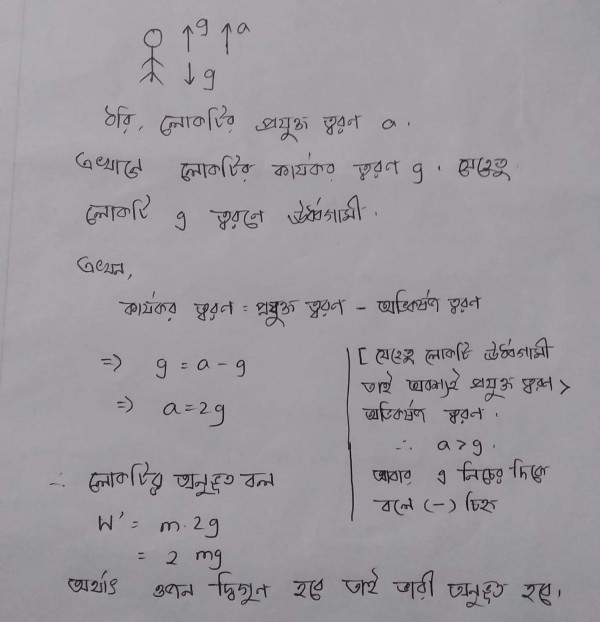 g a
g
ধরি, লোকটির প্রযুক্ত ত্বরণ a.
এখানে লোকটির কার্যকর ত্বরণ g. যেহেতু
লোকটি g ত্বরণে উর্ধ্বগামী.
এখন,
কার্যকর ত্বরণ = প্রযুক্ত ত্বরণ - অভিকর্ষণ ত্বরণ
=> g = a - g
=> a = 2g
[ যেহেতু লোকটি উর্ধ্বগামী
তাই অবশ্যই প্রযুক্ত ত্বরণ >
অভিকর্ষণ ত্বরণ.
∴ a > g.
আবার g নিচের দিকে
বলে (-) চিহ্ন
∴ লোকটির অনুভূত বল
W' = m. 2g
= 2 mg
অর্থাৎ ওজন দ্বিগুন হবে তাই ভারী অনুভূত হবে।